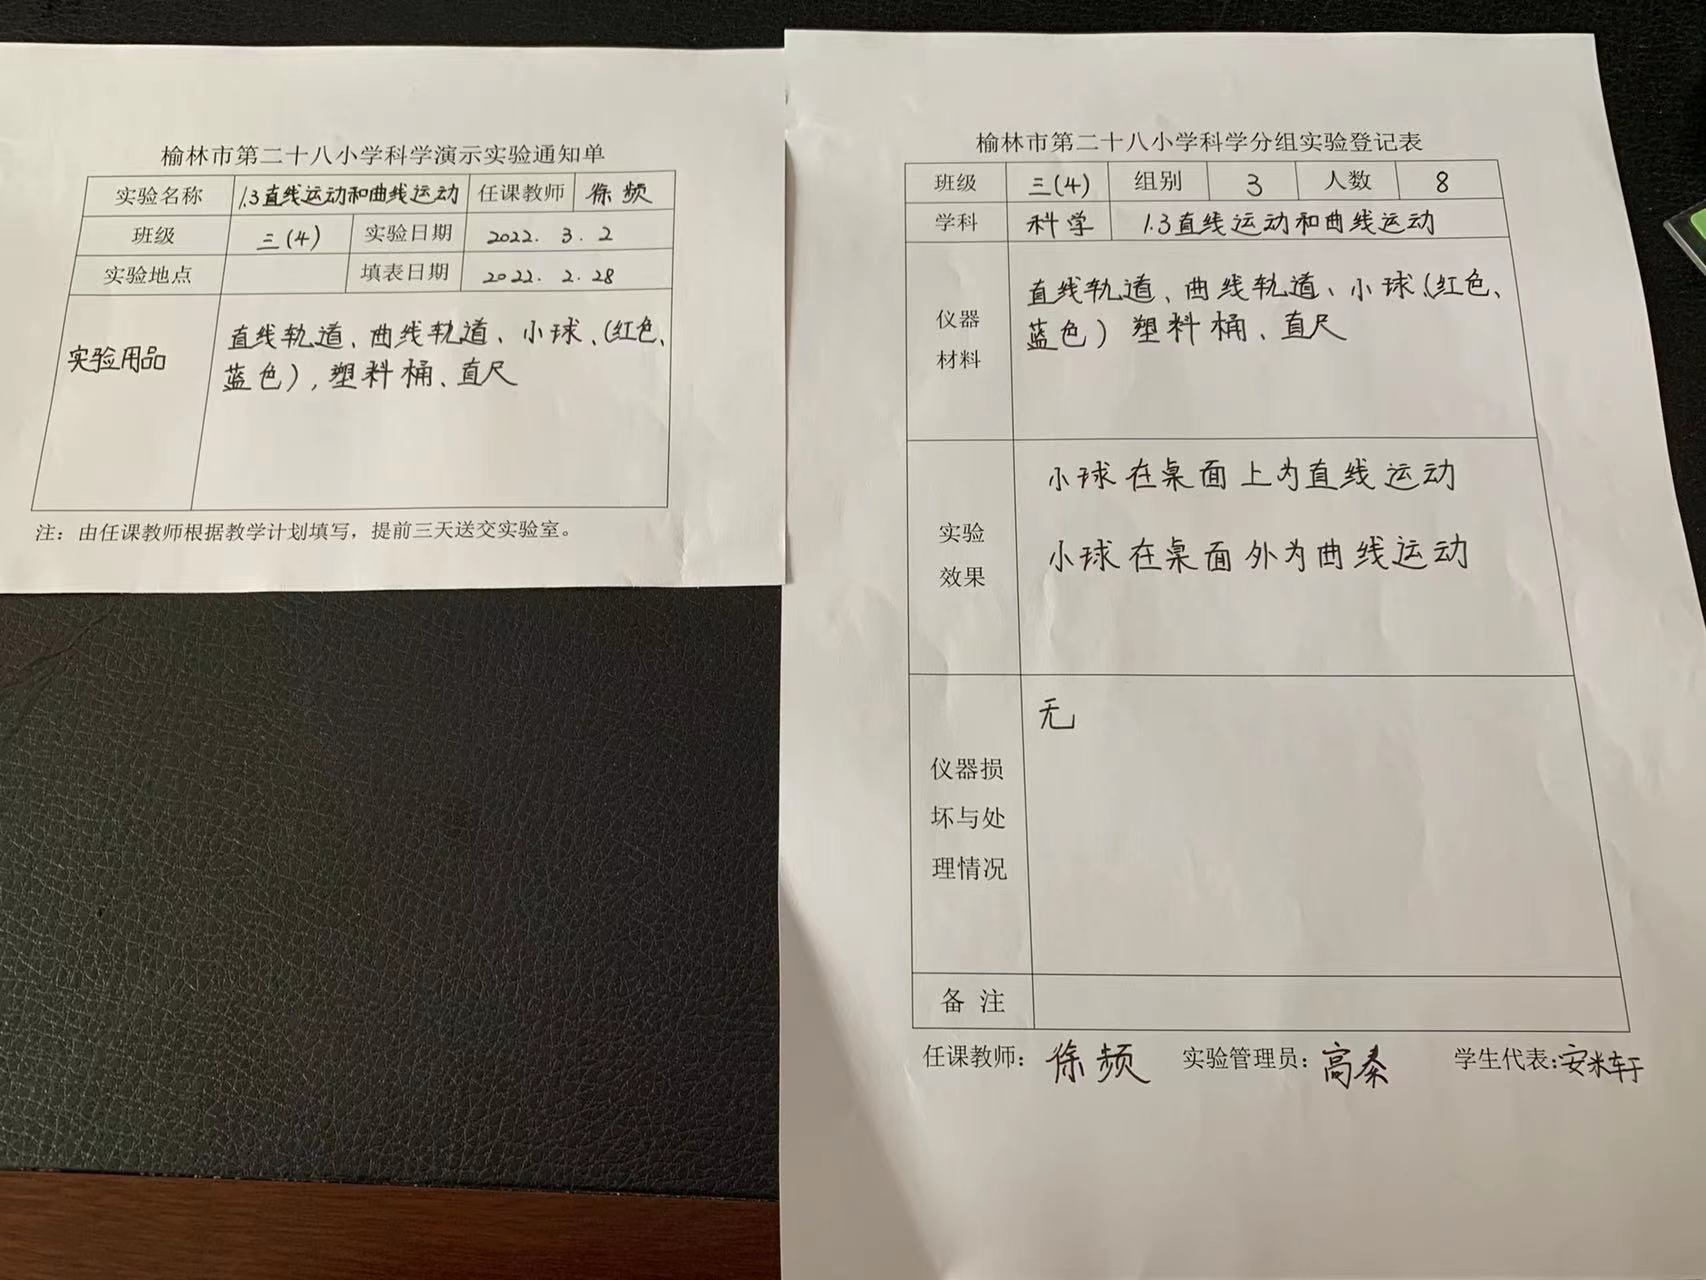 榆林市第二十八小学科学演示实验通知单
实验名称 1.3直线运动和曲线运动 任课教师 徐频
班级 三(4) 实验日期 2022. 3. 2
实验地点 填表日期 2022. 2. 28
实验用品
直线轨道、曲线轨道、小球、(红色、
蓝色),塑料桶、直尺
注：由任课教师根据教学计划填写，提前三天送交实验室。
榆林市第二十八小学科学分组实验登记表
班级 三(4) 组别 3 人数 8
学科 科学 1.3直线运动和曲线运动
仪器
材料
直线轨道、曲线轨道、小球、(红色、
蓝色) 塑料桶、直尺
实验
效果
小球在桌面上为直线运动
小球在桌面外为曲线运动
仪器损
坏与处
理情况
无
备 注
任课教师: 徐频 实验管理员: 高秦 学生代表: 安米轩